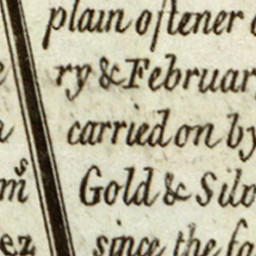 plain oftener
ry & Februar
carried on by
Gold & Silv
since the fa
m.s
ez